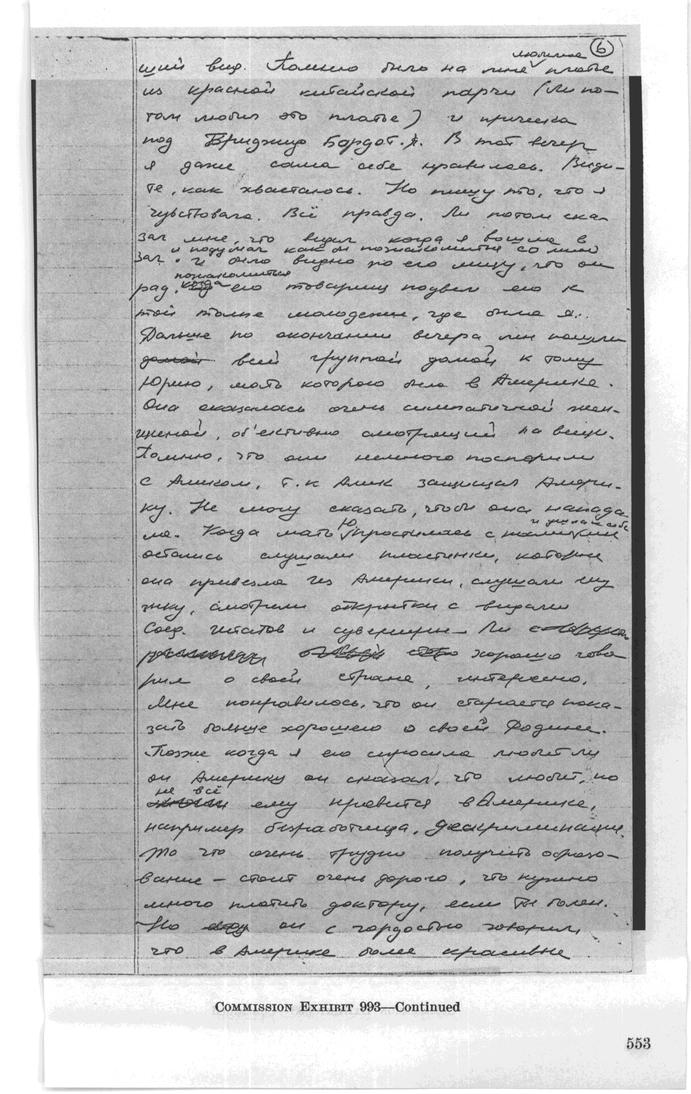 6
моднее
щий вид. Помню было на мне платье
из красной китайской парчи (Ли по-
том любил это платье) и прическа
под Бриджид Бардот. В тот вечер
я даже сама себе нравилась. Види-
те, как хвасталось. Но пишу то, что я
чувствовала. Всё правда. Ли потом ска-
зал мне, что видел когда я вошла в
и подумал как бы познакомится со мной
зал и было видно по его лицу, что он
познакомится
рад, когда его товарищ подвел его к
той толпе молодежи, где была я.
Дальше по окончании вечера мы пошли
домой всей группой домой к тому
Юрию, мать которого была в Америке.
Она оказалась очень симпатичной жен-
щиной, об'ективно смотрящий на вещи.
Помню, что они немного поспорили
с Аликом, т.к Алик защищал Амери-
ку. Не могу сказать, чтобы она напада-
и ушла к себе
ла. Когда мать Ю простилась с
остались слушали пластинки, которые
она привезла из Америки, слушали му
зыку, смотрили открытки с видами
Соед. штатов и сувениры — Ли
хорошо гово
рил о своей стране, интересно.
Мне понравилось, что он старается пока-
зать больше хорошего о своей Родине.
Позже когда я его спросила любит ли
он Америку он сказал, что любит, но
не всё
ему нравится в Америке,
например безработица, дескриминация.
то что очень трудно получить образо-
вание — стоит очень дорого, что нужно
много платить доктору, если ты болен.
Но он с гордостью говорил,
что в Америке более красивые
COMMISSION EXHIBIT 993—Continued
553